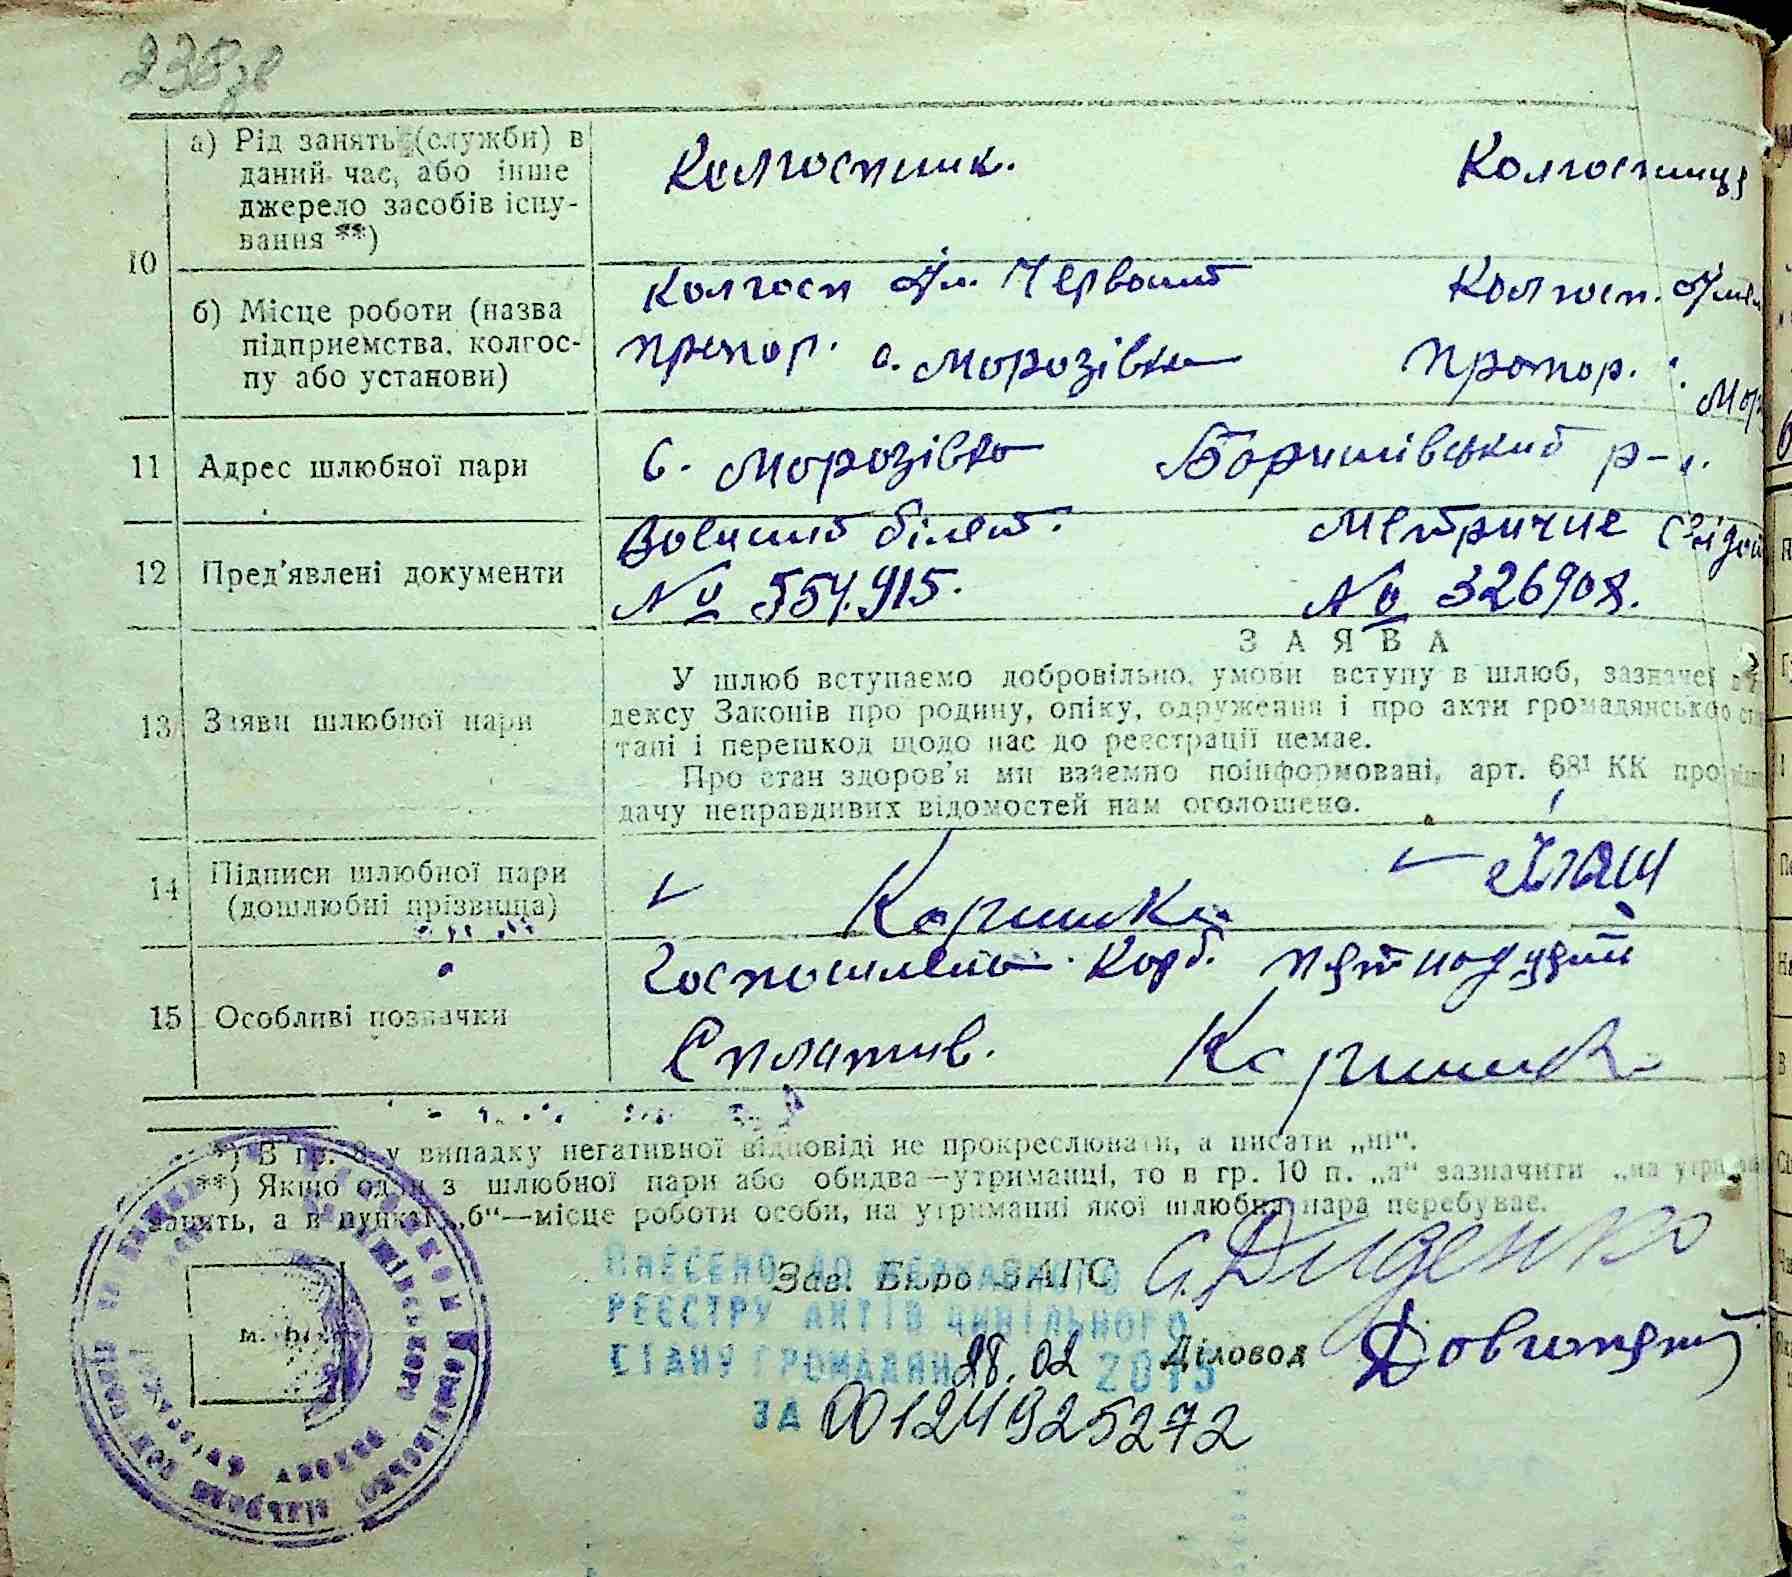 238
а) Рід занять (служби) в
даний час, або інше
джерело засобів існу-
вання **)
Колгоспник. Колгоспниця
10
б) Місце роботи (назва
підприємства, колгос-
пу або установи)
Колгосп Ім. Червоний Колгосп. Імен
прапор. с. Морозівка Прапор. с. Мор
11 Адрес шлюбної пари
с. Морозівка Баришівський р-н.
12 Пред'явлені документи
Воєнний білет. Метричне свідоц
№ 554.915. № 326908.
ЗАЯВА
13 Заяви шлюбної пари
У шлюб вступаємо добровільно, умови вступу в шлюб, зазначені в
дексу Законів про родину, опіку, одруження і про акти громадянсько
тані і перешкод щодо нас до реєстрації немає.
Про стан здоров'я ми взаємно поінформовані, арт. 68¹ КК про
дачу неправдивих відомостей нам оголошено.
14 Підписи шлюбної пари
(дошлюбні прізвища)
15 Особливі позначки
Госпошлено Карб. пятнадцять
Сплатив.
*) В гр. 8 у випадку негативної відповіді не прокреслювати, а писати „ні“.
**) Якщо один з шлюбної пари або обидва—утриманці, то в гр. 10 п. „а“ зазначити „на утрим
занять, а в пункті „б“—місце роботи особи, на утриманні якої шлюбна пара перебуває.
Зав. Бюро ЗАГС С. Диденко
ВНЕСЕНО ДО ДЕРЖАВНОГО
РЕЄСТРУ АКТІВ ЦИВІЛЬНОГО
СТАНУ ГРОМАДЯН 28.02 2015
Діловод
ЗА 00124925272
м. п.